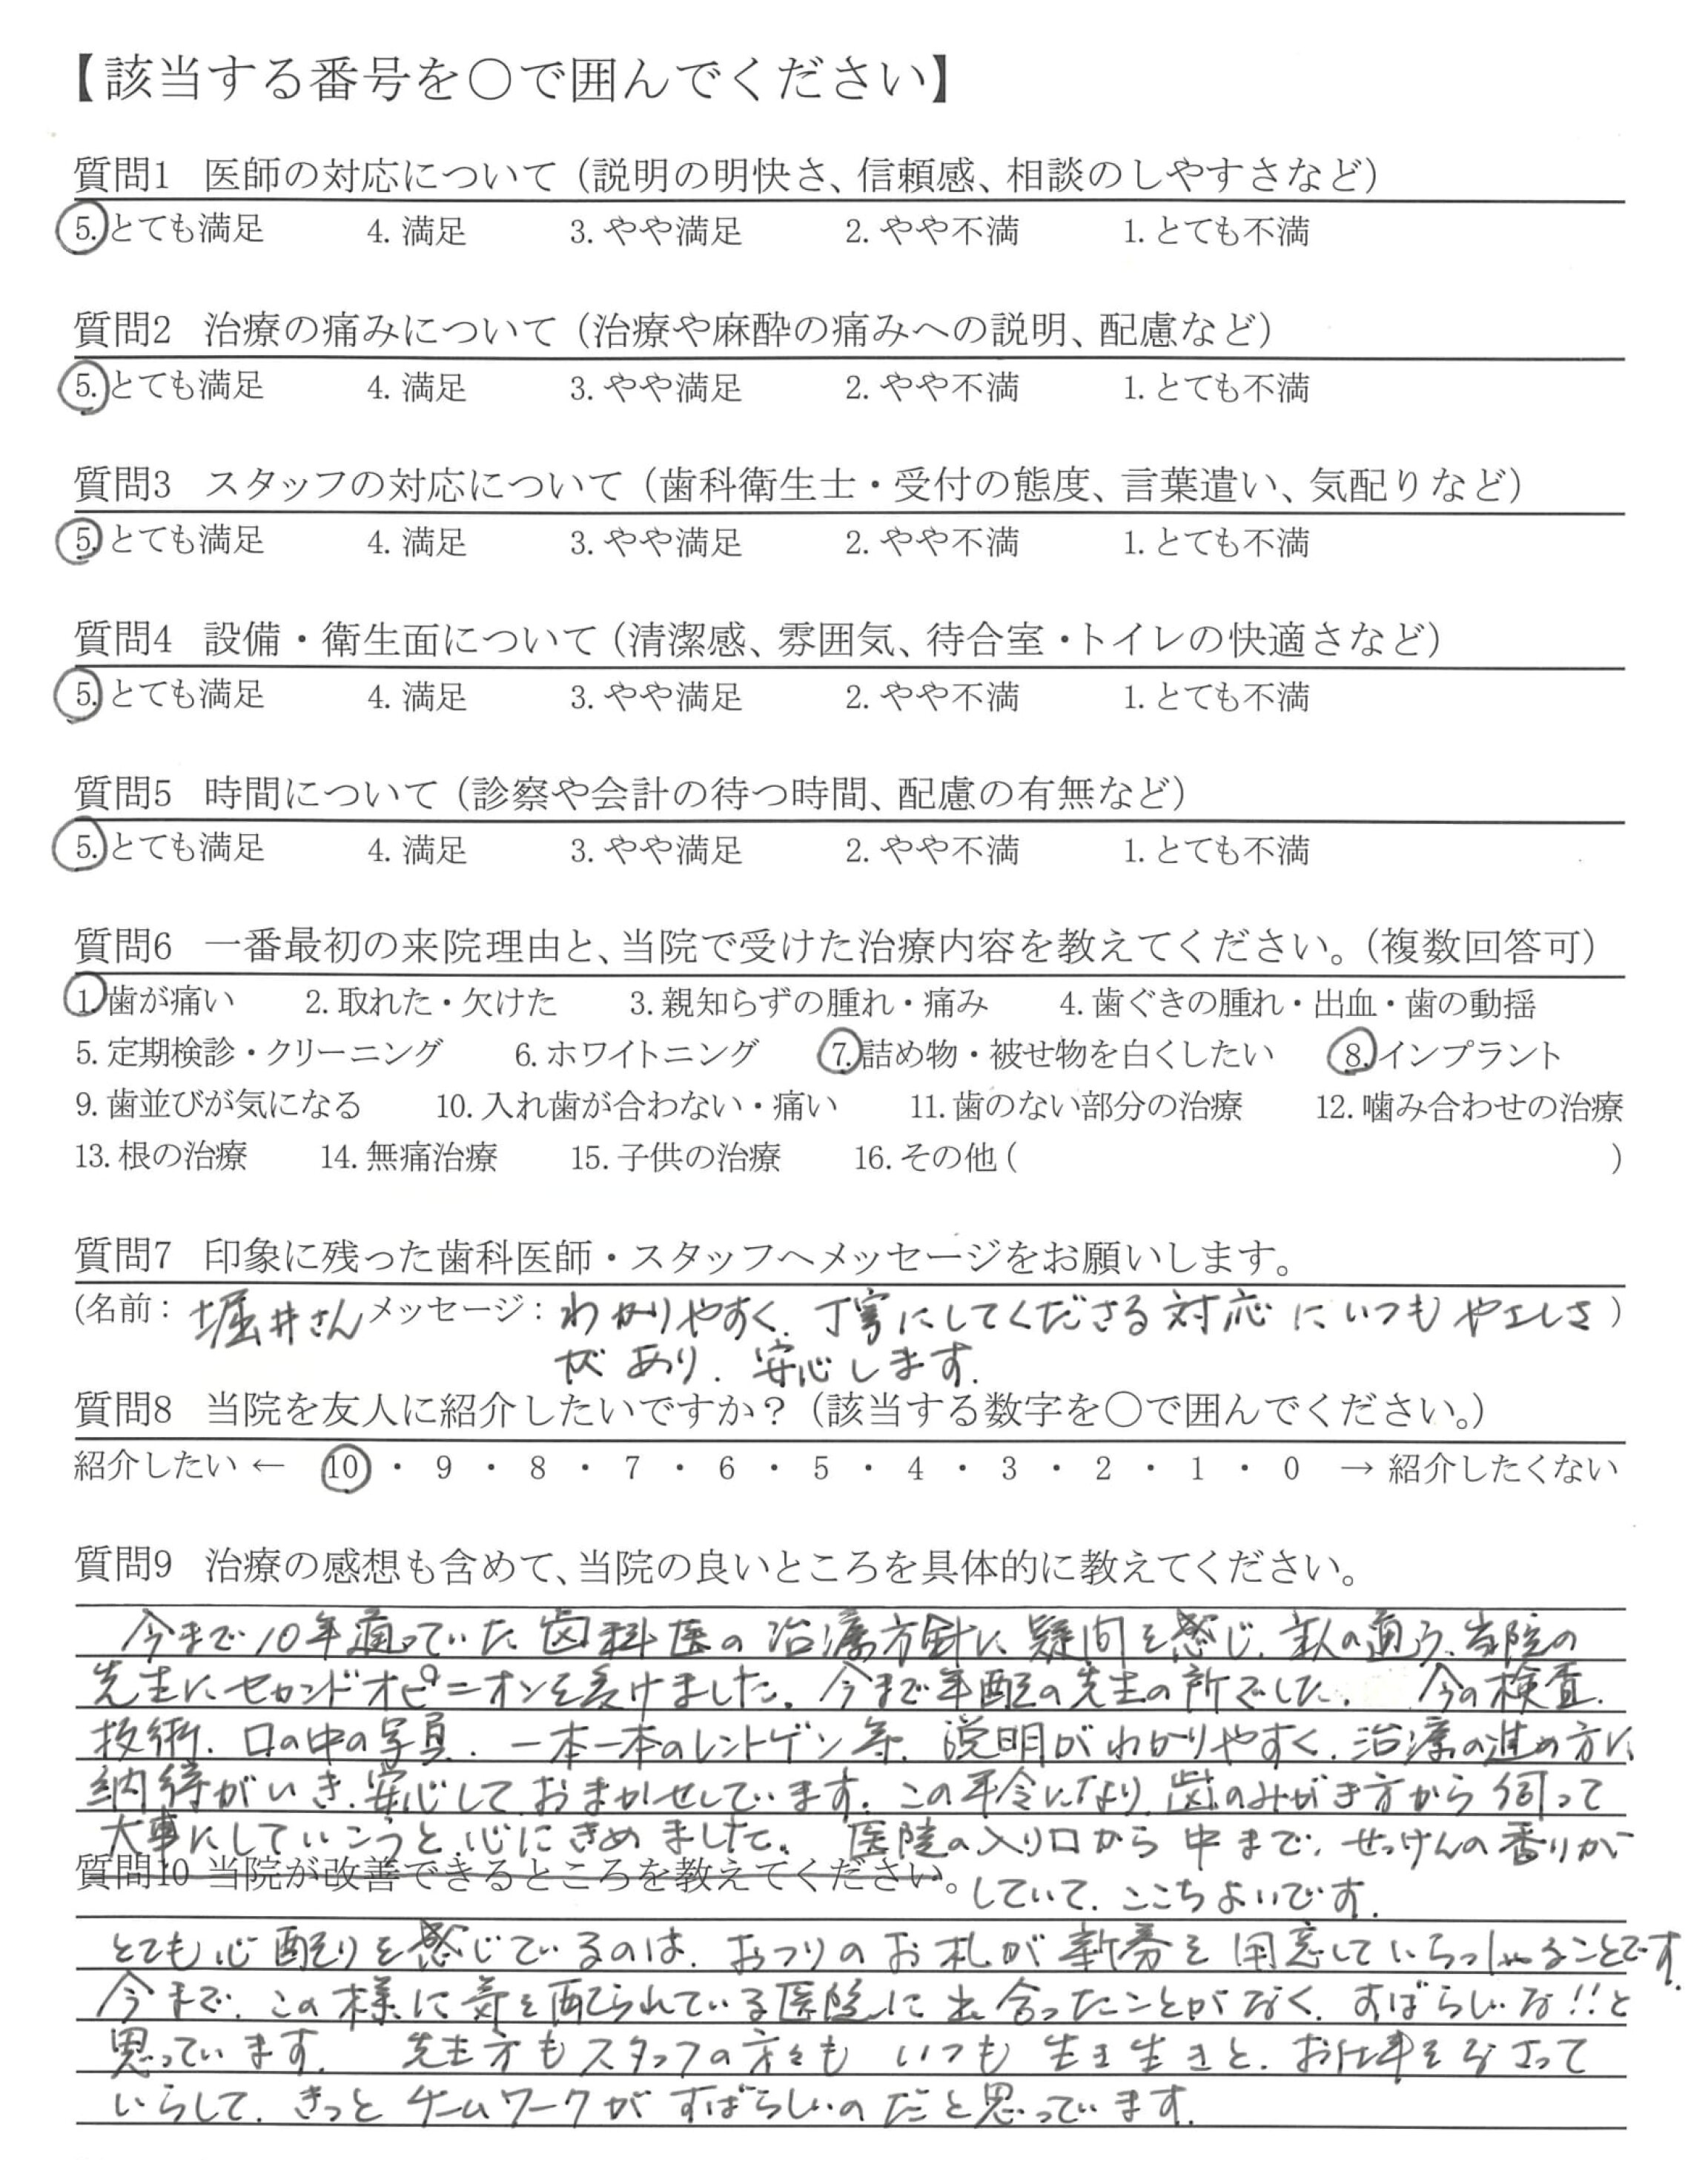 【該当する番号を○で囲んでください】
質問1 医師の対応について（説明の明快さ、信頼感、相談のしやすさなど）
5.とても満足 4.満足 3.やや満足 2.やや不満 1.とても不満
質問2 治療の痛みについて（治療や麻酔の痛みへの説明、配慮など）
5.とても満足 4.満足 3.やや満足 2.やや不満 1.とても不満
質問3 スタッフの対応について（歯科衛生士・受付の態度、言葉遣い、気配りなど）
5.とても満足 4.満足 3.やや満足 2.やや不満 1.とても不満
質問4 設備・衛生面について（清潔感、雰囲気、待合室・トイレの快適さなど）
5.とても満足 4.満足 3.やや満足 2.やや不満 1.とても不満
質問5 時間について（診察や会計の待つ時間、配慮の有無など）
5.とても満足 4.満足 3.やや満足 2.やや不満 1.とても不満
質問6 一番最初の来院理由と、当院で受けた治療内容を教えてください。（複数回答可）
1.歯が痛い 2.取れた・欠けた 3.親知らずの腫れ・痛み 4.歯ぐきの腫れ・出血・歯の動揺
5.定期検診・クリーニング 6.ホワイトニング 7.詰め物・被せ物を白くしたい 8.インプラント
9.歯並びが気になる 10.入れ歯が合わない・痛い 11.歯のない部分の治療 12.噛み合わせの治療
13.根の治療 14.無痛治療 15.子供の治療 16.その他（ ）
質問7 印象に残った歯科医師・スタッフへメッセージをお願いします。
（名前：堀井さん メッセージ：わかりやすく、丁寧にしてくださる対応にいつもやさしさ）
があり、安心します。
質問8 当院を友人に紹介したいですか？（該当する数字を○で囲んでください。）
紹介したい ← 10・9・8・7・6・5・4・3・2・1・0 → 紹介したくない
質問9 治療の感想も含めて、当院の良いところを具体的に教えてください。
今まで10年通っていた歯科医の治療方針に疑問を感じ、主人の通う、当院の
先生にセカンドオピニオンを受けました。今まで年配の先生の所でした。 今の検査、
技術、口の中の写真、一本一本のレントゲン等、説明がわかりやすく、治療の進め方に
納得がいき、安心しておまかせしています。この年令になり、歯のみがき方から伺って
大事にしていこうと、心にきめました。 医院の入り口から中まで、せっけんの香りが
していて、ここちよいです。
質問10 当院が改善できるところを教えてください。
とても心配りを感じているのは、おつりのお札が新券を用意していらっしゃることです。
今まで、この様に気を配られている医院に出合ったことがなく、すばらしいな!!と
思っています。 先生方もスタッフの方々も いつも生き生きと、お仕事をなさって
いらして、きっとチームワークがすばらしいのだと思っています。